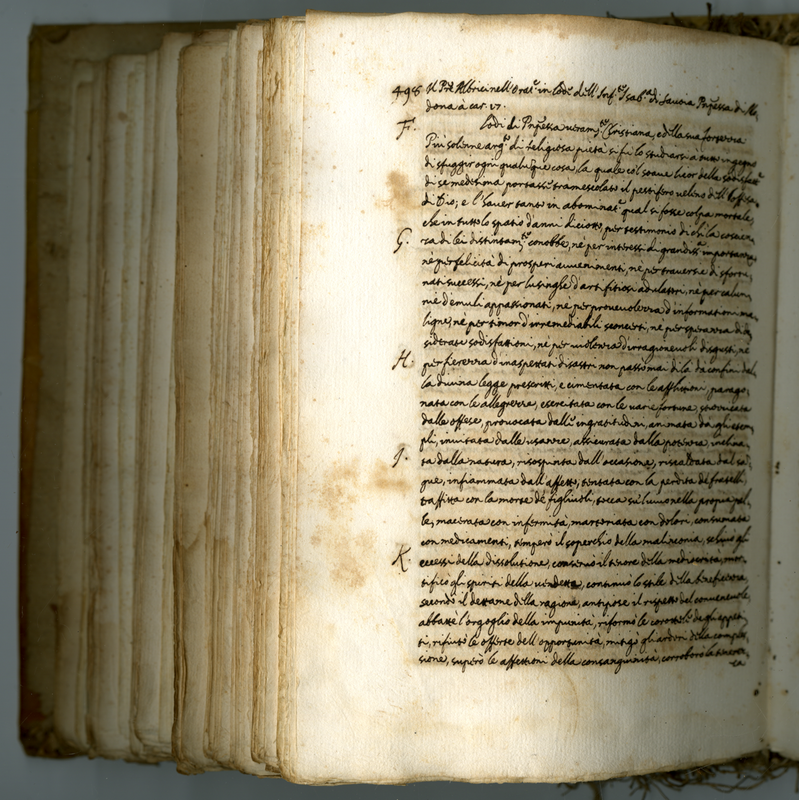 498 Il Pre Albrici nell'Orat.e in lode dell'Inf.te Isab.a di Savoia Pnpessa di Mo,
dona à car. 17.
F. Lodi di Pnpessa veram.te Cristiana, e della sua fortezza
Più solenne arg.o di religiosa pietà si fù lo studiarsi à tutto ingegno
di sfuggir ogni qualunque cosa, la quale col soave licor della
di se medesima portasse tramescolato il pestifero veleno dell'offesa
di Dio; e l'haver tanto in abominat.e qual si fosse colpa mortale,
che in tutto lo spatio d'anni diciotto, per testimonio di chi la coscien,
G. za di lei distintam.te conobbe, nè per interessi di grandiss.a importanza,
nè per felicità di prosperi avvenimenti, nè per traversie di sfortu,
nati successi, nè per lusinghe d'artifitiosi adulatori, nè per calun,
nie d'emuli appassionati, nè per provevolezza d'informationi ma,
ligne, nè per timor d'irremediabili sconcerti, nè per speranza di de,
siderate sodisfattioni, nè per violenza d'irragionevoli disgusti, nè
H. per fierezza d'inaspettati disastri non passò mai di là da confini dal,
la divina legge prescritti, e cimentata con le afflittioni, parago,
nata con le allegrezze, esercitata con le varie fortune, stuzzicata
dalle offese, provocata dall' ingratitudini, animata da gli esem,
pli, invitata dalle usanze, assicurata dalla potenza, inclina,
I. ta dalla natura, risospinta dall'occasione, riscaldata dal sa,
gue, infiammata dall'affetto, tentata con la perdita de fratelli,
trafitta con la morte de figliuoli, tocca sul vivo nella propia pel,
le, macerata con infermità, martoriata con dolori, consumata
con medicamenti, temperò il soperchio della malinconia, schivò gl'
K. eccessi della dissolutione, conservò il tenore della mediocrità, mor,
tificò gli spiriti della vendetta, continuò lo stile della beneficenza,
secondo il dettame della ragione, antipose il rispetto del convenevole,
abbattè l'orgoglio della impunità, riformò le corottele degli appeti,
ti, rifiutò le offerte dell'opportunità, mitigò gli ardori della comples,
sione, superò le affettioni della consanguinità, corroborò la tenerez,
za